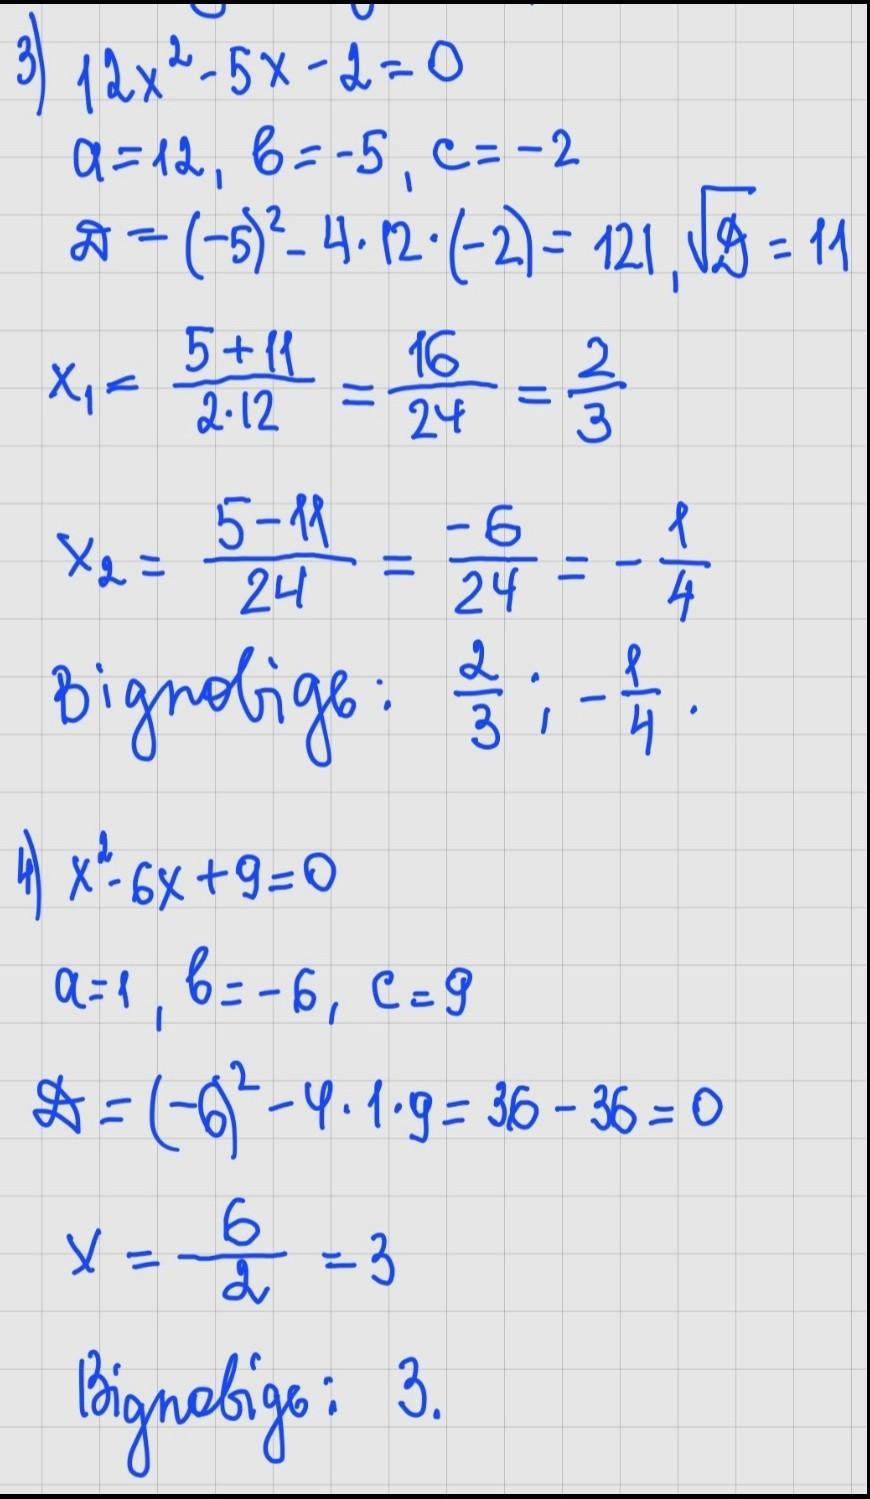 3) 12x² - 5x - 2 = 0
a = 12, b = -5, c = -2
D = (-5)² - 4·12·(-2) = 121, √D = 11
x₁ = (5+11)/(2·12) = 16/24 = 2/3
x₂ = (5-11)/24 = -6/24 = -1/4
Відповідь: 2/3; -1/4.
4) x² - 6x + 9 = 0
a = 1, b = -6, c = 9
D = (-6)² - 4·1·9 = 36 - 36 = 0
x = 6/2 = 3
Відповідь: 3.